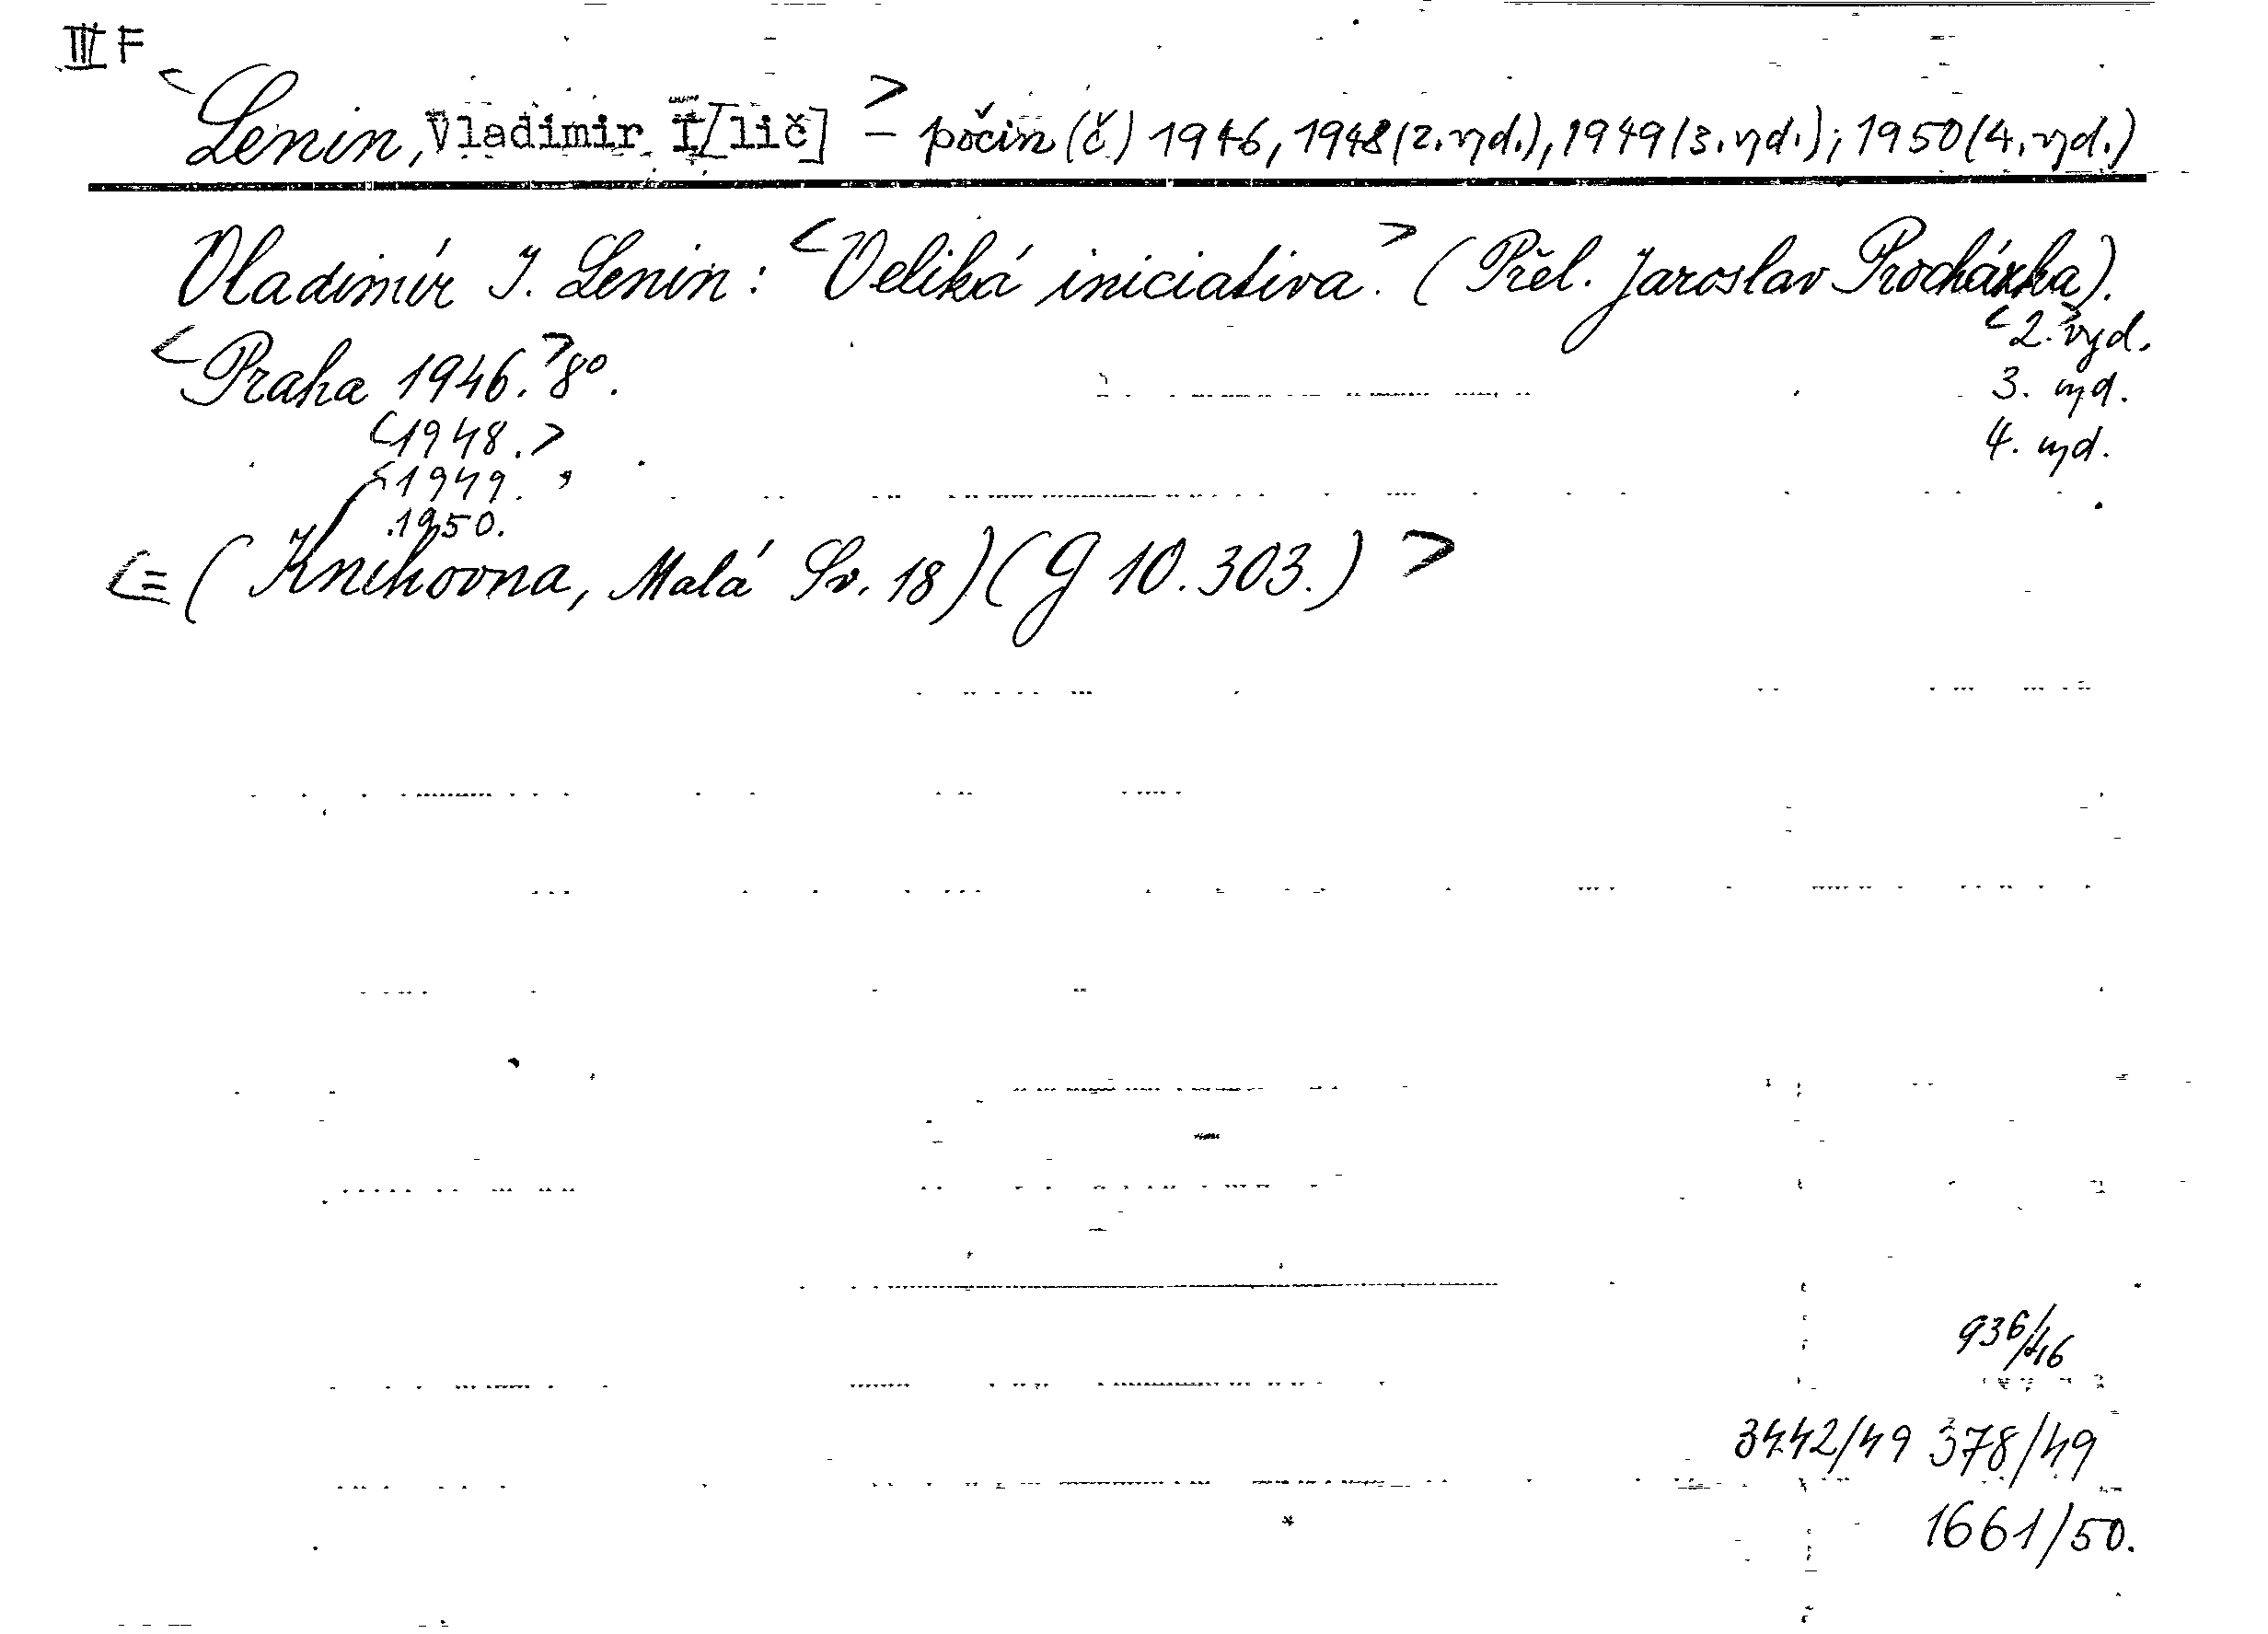 III F
<Lenin, Vladimir I[lič]> – počin (č) 1946, 1948 (2. vyd.), 1949 (3. vyd.); 1950 (4. vyd.)
Vladimír I. Lenin: <Veliká iniciativa.> (Přel. Jaroslav Procházka).
<2.> vyd.
<Praha 1946.> 8°.
3. vyd.
<1948.>
4. vyd.
<1949.>
1950.
<= (Knihovna, Malá Sv. 18) (G 10.303.)>
936/46
3442/49 378/49
1661/50.